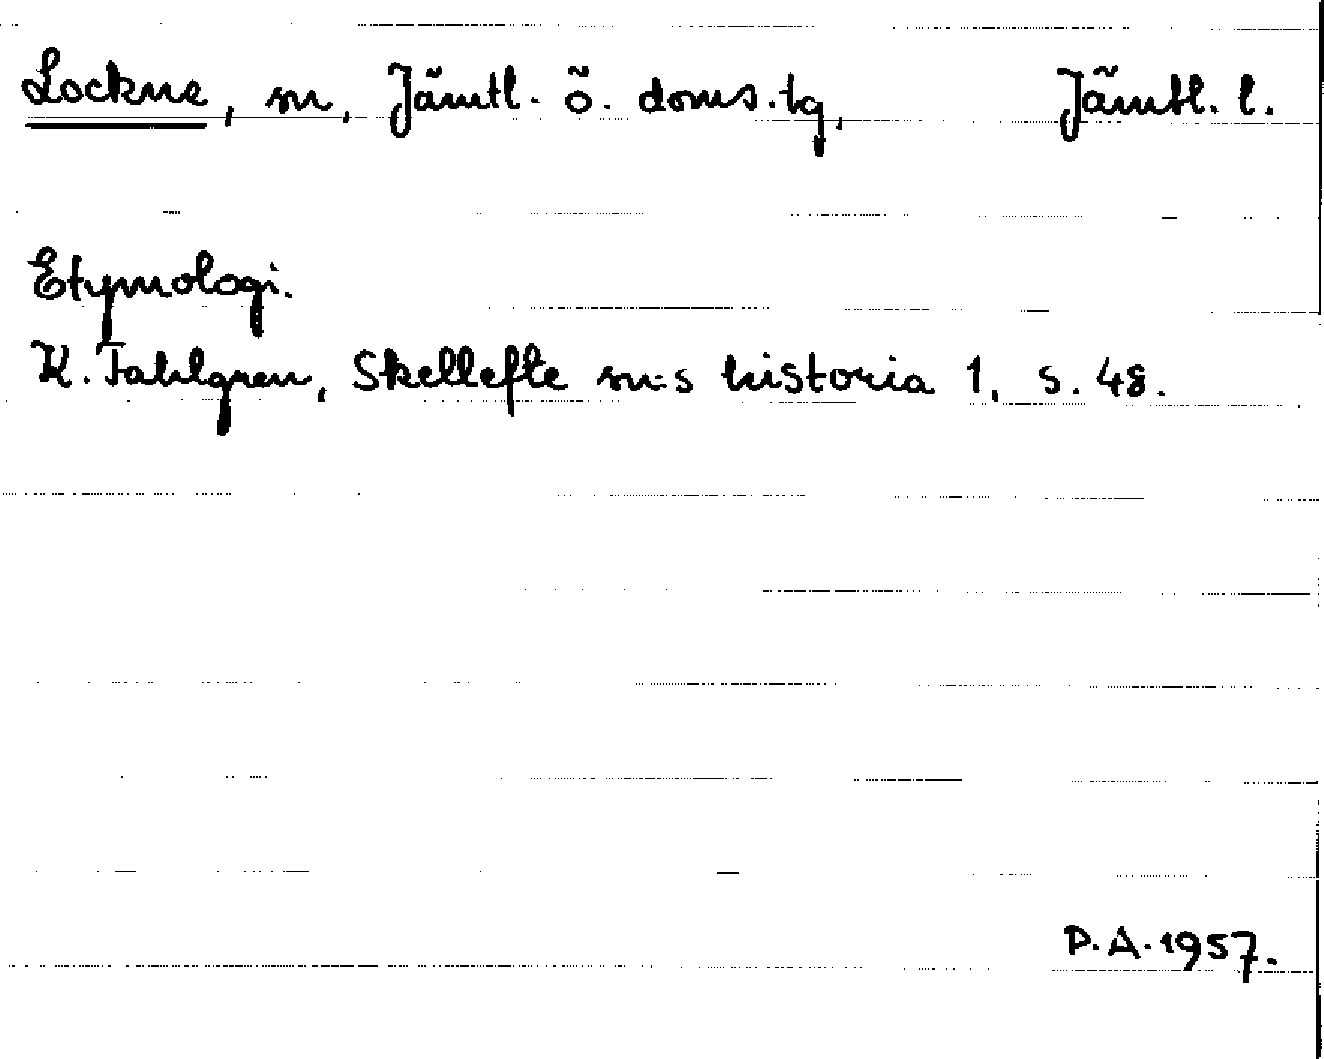 Lockne, sn, Jämtl. ö. doms.tg, Jämtl. l.
Etymologi.
K. Fahlgren, Skellefte sn:s historia 1, s. 48.
P.A. 1957.